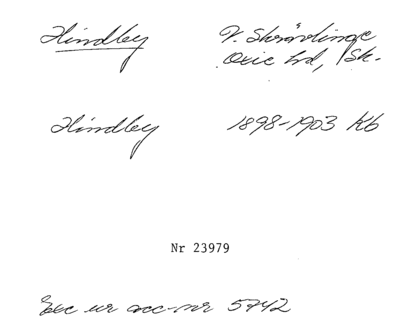 Hindley V. Skrävlinge
Oxie hd, Sk.
Hindley 1898-1903 Kb
Nr 23979
Exc ur acc-nr 5742